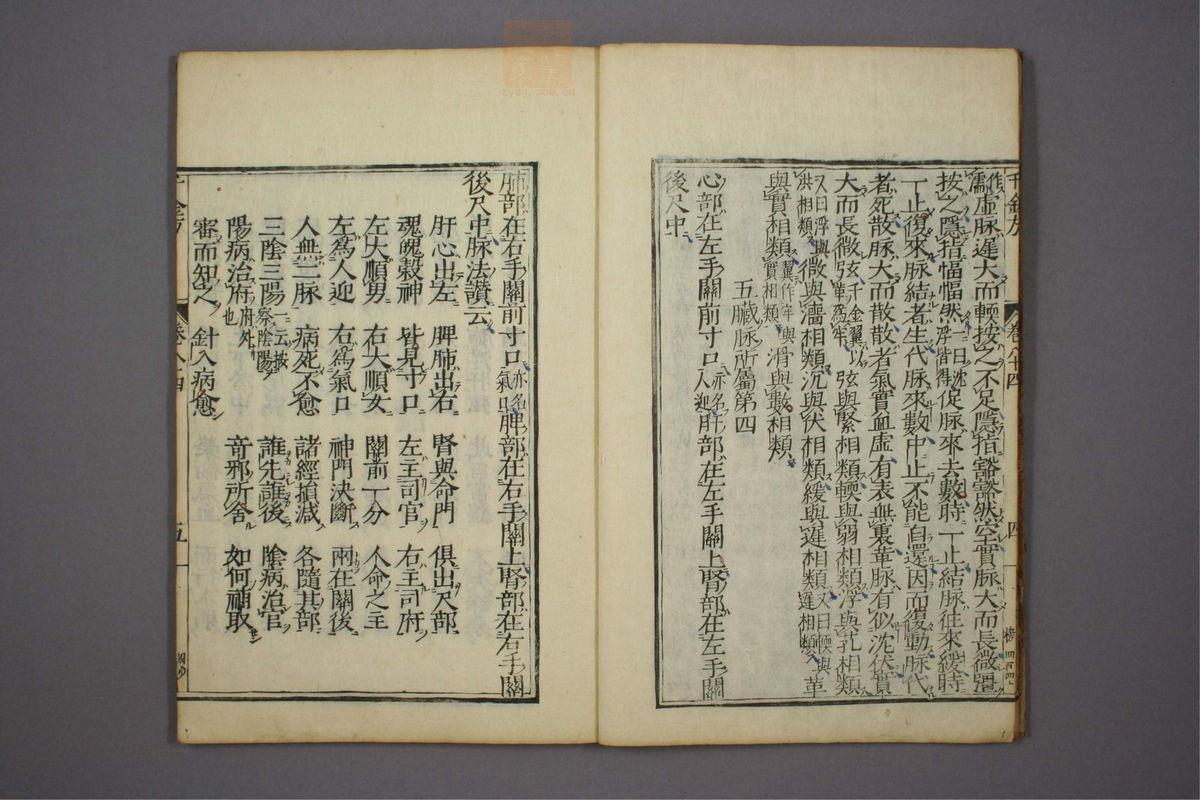 千金方 卷八十四 四
作濡虛脉遲大而輭按之不足隱指豁豁然空實脉大而長微彊
按之隱指愊愊然一曰沈浮皆得促脉來去數時一止結脉往來緩時
一止復來脉結者生代脉來數中止不能自還因而復動脉代
者死散脉大而散散者氣實血虛有表無裏革脉有似沈伏實
大而長微弦千金翼以革爲牢弦與緊相類輭與弱相類浮與芤相類
又曰浮與洪相類微與濇相類沉與伏相類緩與遲相類又曰輭與遲相類革
與實相類翼作牢與實相類滑與數相類
五臟脉所屬第四
心部在左手關前寸口亦名人迎肝部在左手關上腎部在左手關
後尺中
肺部在右手關前寸口亦名氣口脾部在右手關上腎部在右手關
後尺中脉法讚云
肝心出左 脾肺出右 腎與命門 俱出尺部
魂魄穀神 皆見寸口 左主司官 右主司府
左大順男 右大順女 關前一分 人命之主
左爲人迎 右爲氣口 神門決斷 兩在關後
人無二脉 病死不愈 諸經損減 各隨其部
三陰三陽一云按察陰陽 誰先誰後 陰病治官
陽病治府府外也 奇邪所舍 如何補取
審而知之 針入病愈
千金方 卷八十四 五